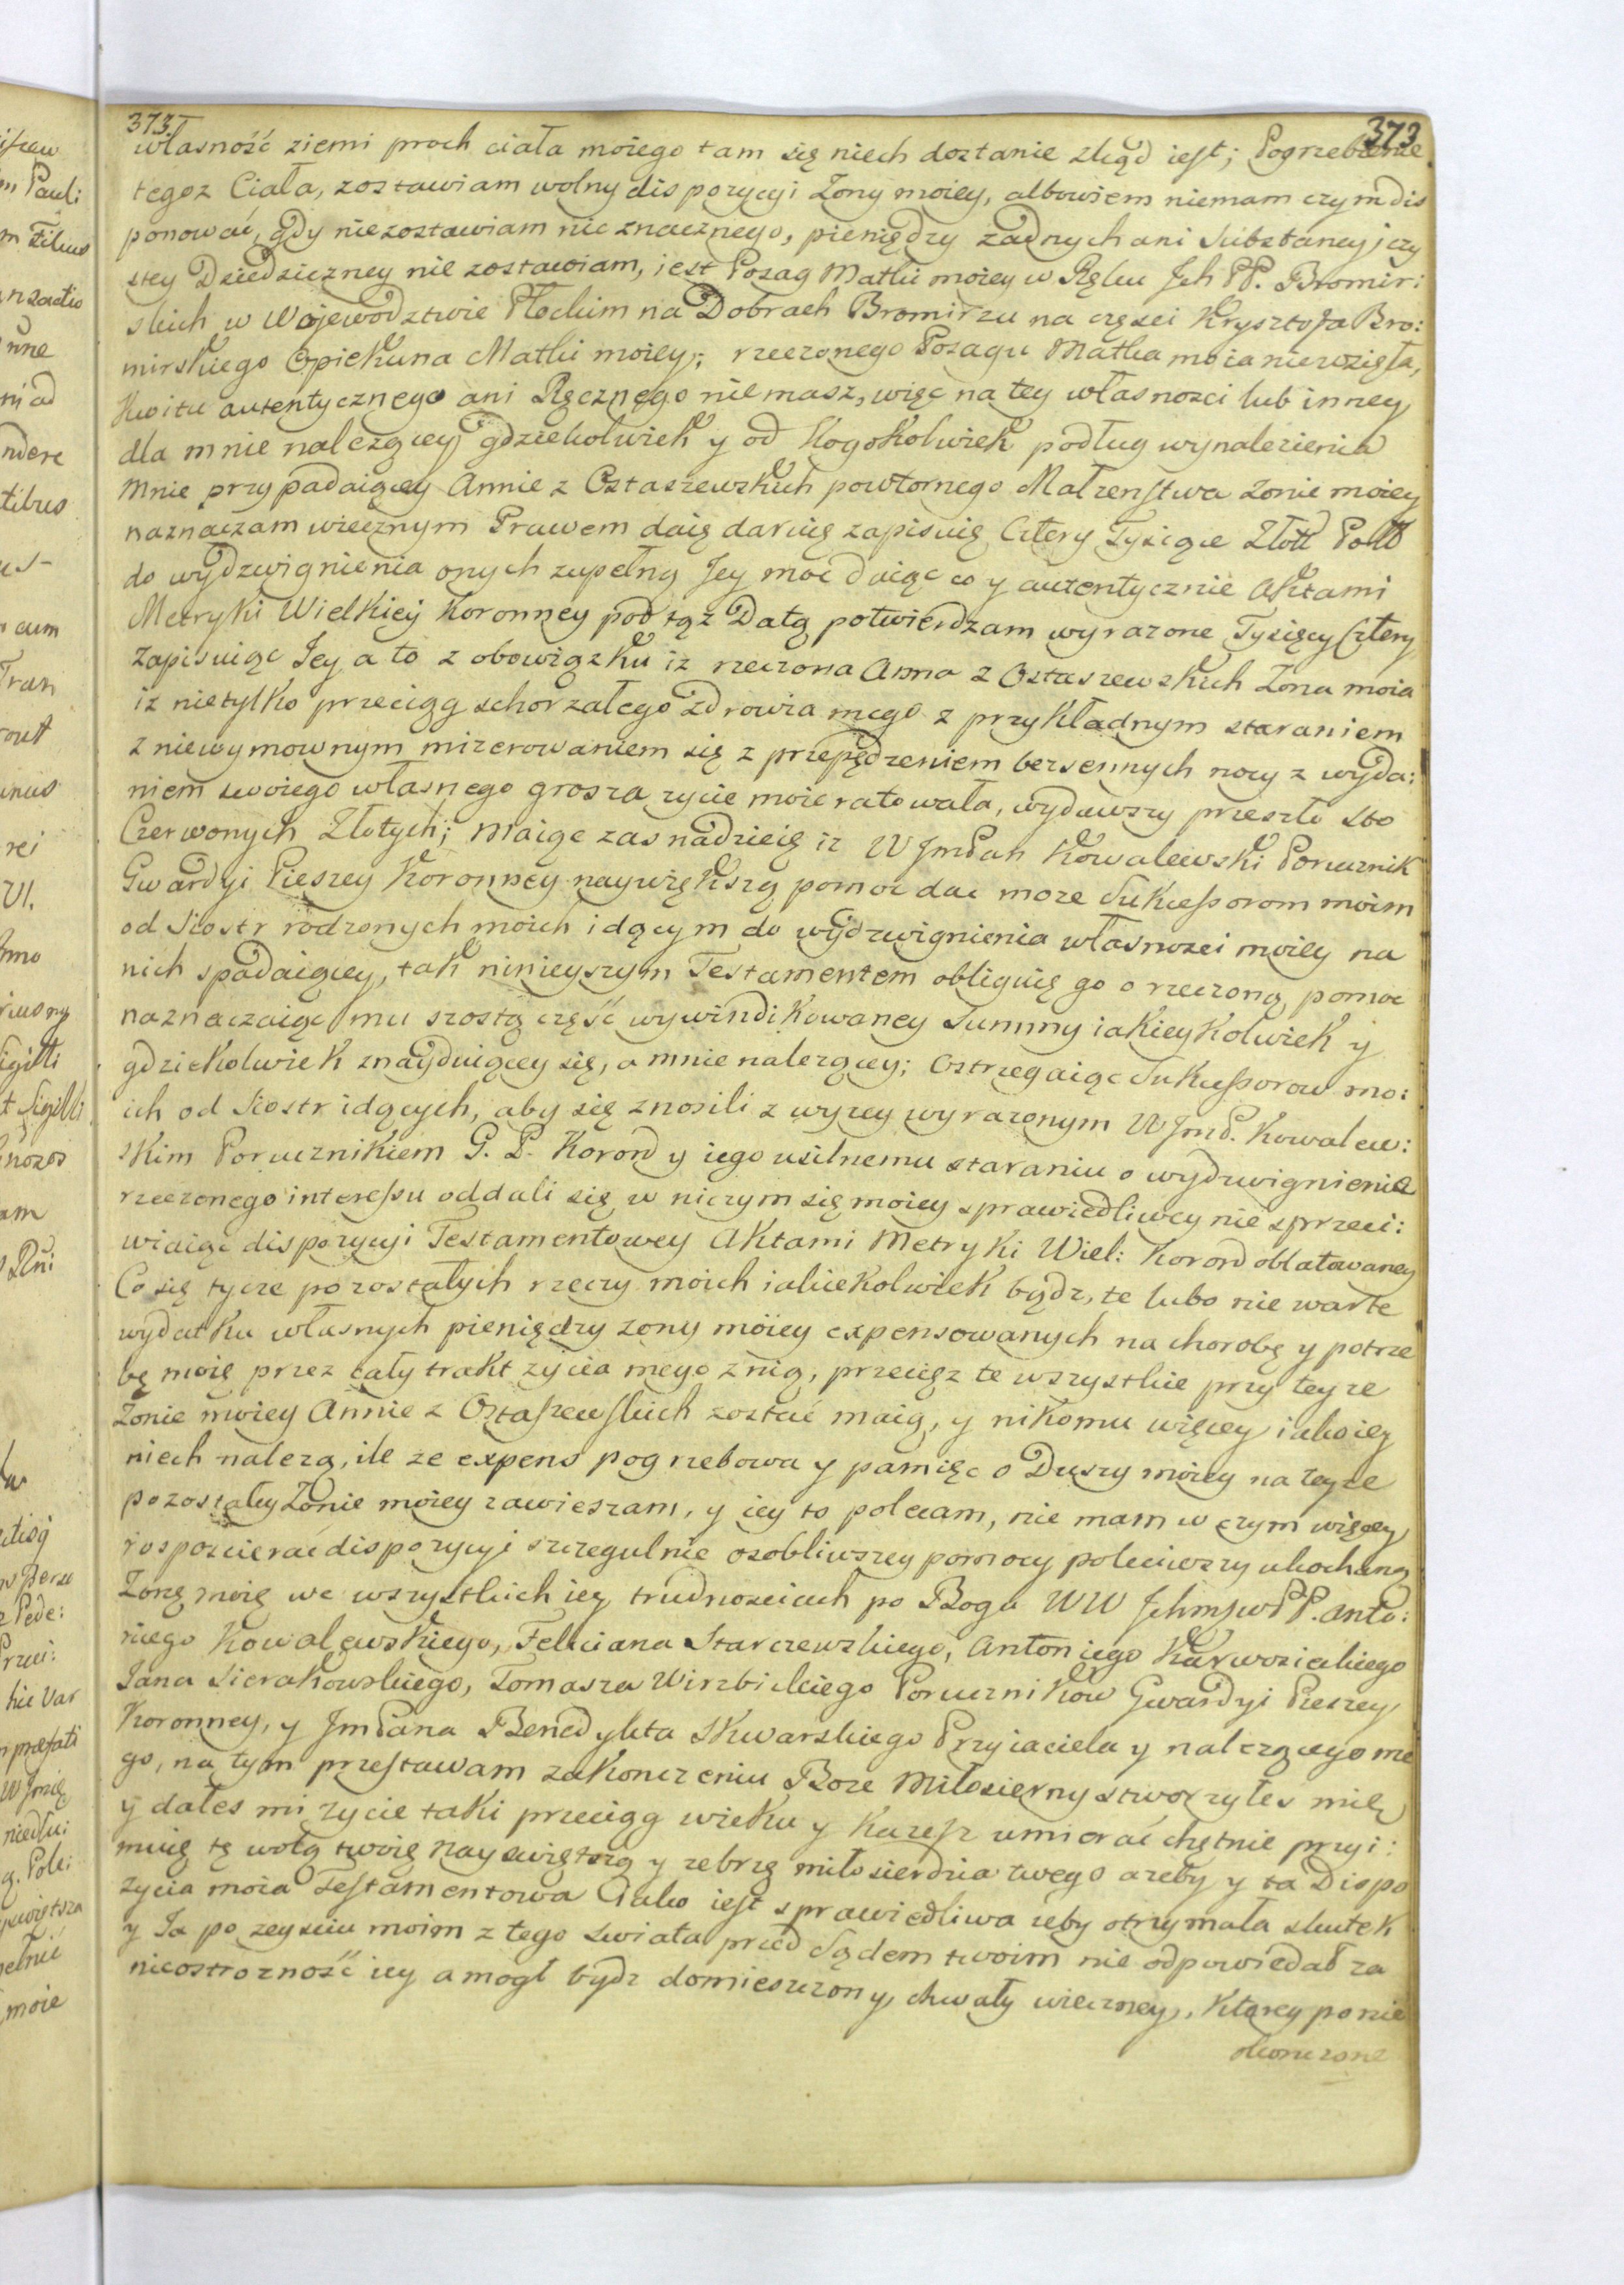 373. 373
własność ziemi proch ciała moiego tam się niech dostanie zkąd iest; Pogrzebienie
tegoz Ciała, zostawiam wolny dispozycyi Zony moiey, albowiem niemam czym dis
ponować, gdy niezostawiam nic znacznego, pieniędzy zadnych ani Substancyi czy
stey Dziedziczney nie zostawiam, iest Posag Matki moiey w Ręku Jch PP. Bromir:
skich w Wojewodztwie Płockim na Dobrach Bromirzu na częsci Krysztofa Bro:
mirskiego Opiekuna Matki moiey; rzeczonego Posagu Matka moia niewzięła,
Kwitu autentycznego ani Ręcznego niemasz, więc na tey własnosci lub inney
dla mnie nalezącey gdziekolwiek y od Kogokolwiek podług wynalezienia
mnie przypadaiącey Annie z Ostaszewskich powtornego Małzenstwa Zonie moiey
naznaczam wiecznym Prawem daię daruię zapisuię Cztery Tysiące Złott Poll
do wydzwignienia onych zupełną Jey moc daiąc co y autentycznie Aktami
Metryki Wielkiey Koronney pod tąz Datą potwierdzam wyrazone Tysięcy Cztery
zapisuiąc Jey a to z obowiązku iz rzeczona Anna z Ostaszewskich Zona moia
iz nietylko przeciąg schorzałego zdrowia mego z przykładnym staraniem
z niewymownym mizerowaniem się z przepędzeniem bezsennych nocy z wyda:
niem swoiego własnego grosza zycie moie ratowała, wydawszy przeszło sto
Czerwonych Złotych; maiąc zas nadzieię iz WJmPan Kowalewski Porucznik
Gwardyi Pieszey Koronney naywiększą pomoc dac moze Sukcessorom moim
od Siostr rodzonych moich idącym do wydzwignienia własnosci moiey na
nich spadaiącey, tak ninieyszym Testamentem obliguię go o rzeczoną pomoc
naznaczaiąc mu szostą część wywindikowaney Summy iakieykolwiek y
gdziekolwiek znayduiącey się, a mnie nalezącey; ostrzegaiąc Sukcessorow mo:
ich od Siostr idących, aby się znosili z wyzey wyrazonym WJmP. Kowalew:
skim Porucznikiem G. P. Koron y iego usilnemu staraniu o wydzwignienie
rzeczonego interessu oddali się w niczym się moiey sprawiedliwey nie sprzeci:
wiaiąc dispozycyi Testamentowey Aktami Metryki Wiel: Koron oblatowaney
Co się tycze pozostałych rzeczy moich iakiekolwiek bądz, te lubo nie warte
wydatku własnych pieniędzy zony moiey expensowanych na chorobę y potrze
bę moię przez cały trakt zycia mego z nią, przecięz te wszystkie przy teyze
Zonie moiey Annie z Ostaszewskich zostać maią, y nikomu więcey iako iey
niech nalezą, ile ze expens pogrzebowa y pamięc o Duszy moiey na teyze
pozostałey Zonie moiey zawieszam, y iey to polecam, nie mam w czym więcey
rospościerać dispozycyi szczegulnie osobliwszey pomocy poleciwszy ukochaną
Zonę moię we wszystkich iey trudnosciach po Bogu WW JchmsWPP. Anto:
niego Kowalewskiego, Feliciana Starczewskiego, Antoniego Karwosieckiego
Jana Sierakowskiego, Tomasza Wirzbickiego Porucznikow Gwardyi Pieszey
Koronney, y JmPana Benedykta Skwarskiego Przyiaciela y nalezącego me
go, na tym przestawam zakonczeniu Boze Miłosierny stworzyłes mię
y dałes mi zycie taki przeciąg wieku y kazesz umierać chętnie przyi:
muię tę wolą twoię nayswiętszą y zebrzę miłosierdzia twego azeby y ta Dispo
zycia moia Testamentowa iako iest sprawiedliwa zeby otrzymała skutek
y Ja po zeysciu moim z tego swiata przed Sądem twoim nie odpowiedał za
nieostrozność iey a mogł bydz domieszczony chwały wieczney, Ktorey po nie
skonczone